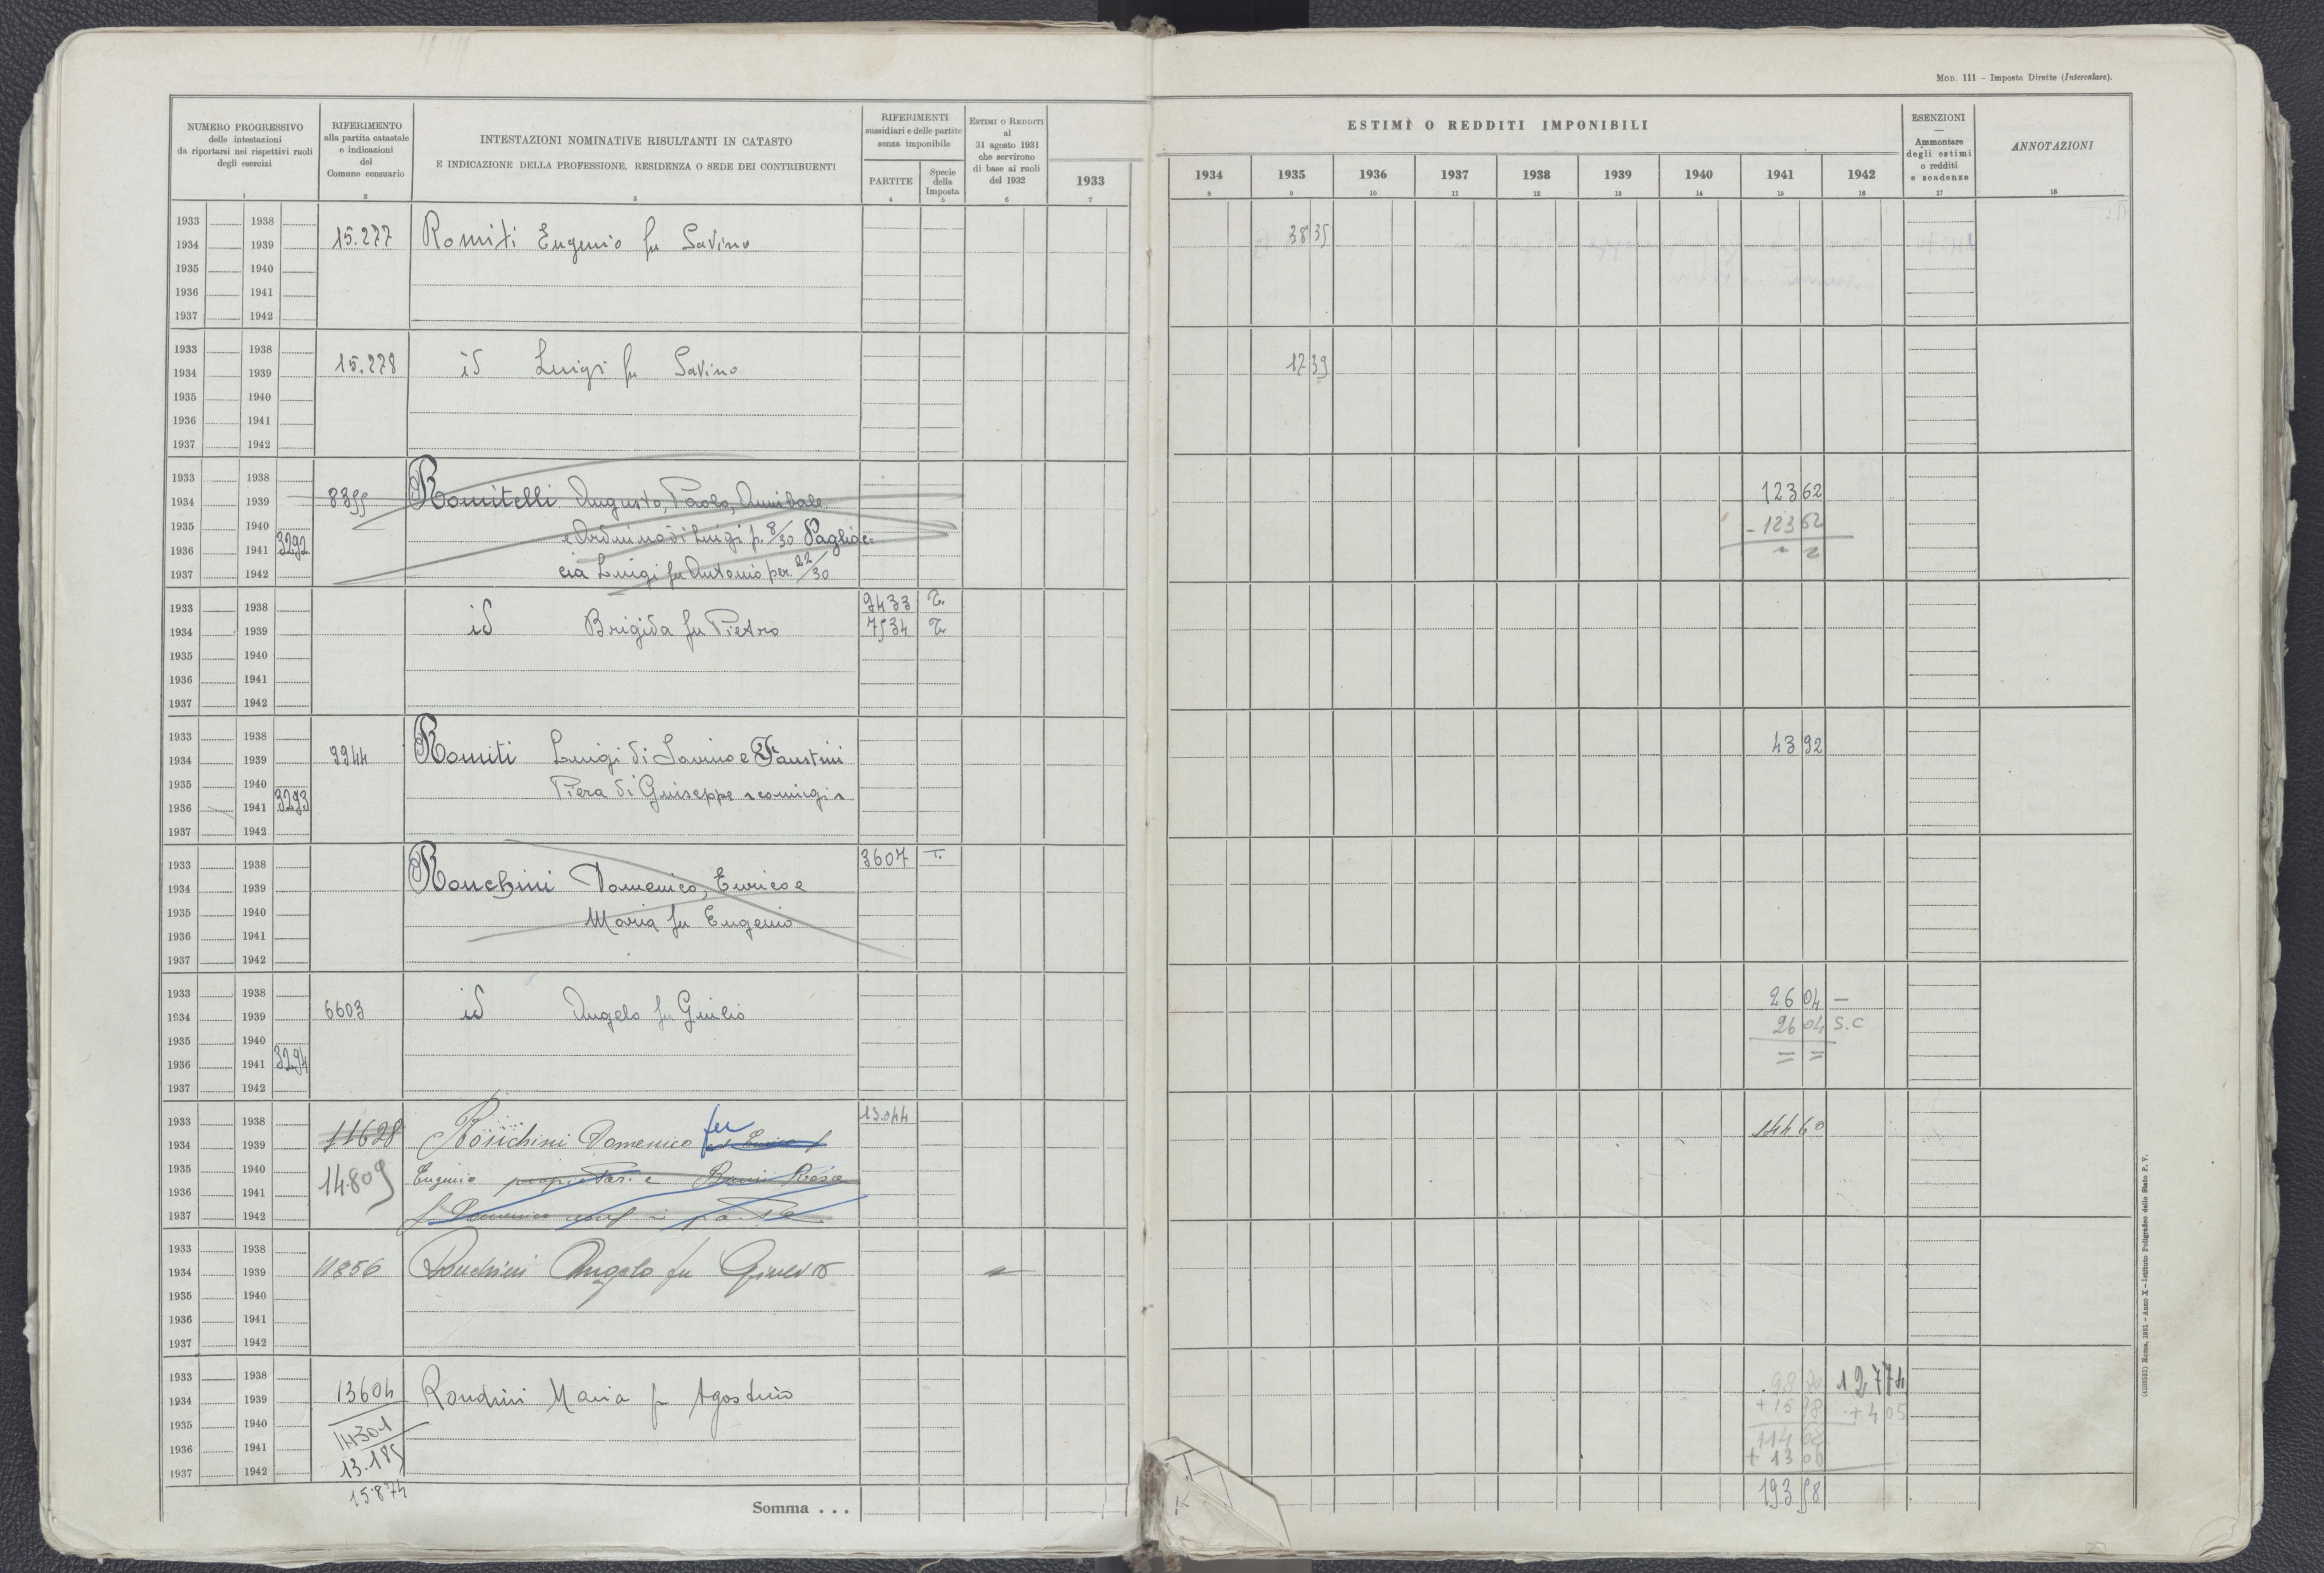 Mod. 111 – Imposte Dirette (Intercalare).
NUMERO PROGRESSIVO
delle intestazioni
da riportarsi nei rispettivi ruoli
degli esercizi
1
RIFERIMENTO
alla partita catastale
e indicazioni
del
Comune censuario
2
INTESTAZIONI NOMINATIVE RISULTANTI IN CATASTO
E INDICAZIONE DELLA PROFESSIONE, RESIDENZA O SEDE DEI CONTRIBUENTI
3
RIFERIMENTI
sussidiari e delle partite
senza imponibile
PARTITE
4
Specie
della
Imposta
5
ESTIMI O REDDITI
al
31 agosto 1931
che servirono
di base ai ruoli
del 1932
6
1933
7
ESTIMI O REDDITI IMPONIBILI
1934 1935 1936 1937 1938 1939 1940 1941 1942
8 9 10 11 12 13 14 15 16
ESENZIONI
—
Ammontare
degli estimi
o redditi
e scadenze
17
ANNOTAZIONI
18
1933 1938
1934 1939 15.277 Romiti Eugenio fu Savino 38 35
1935 1940
1936 1941
1937 1942
1933 1938
1934 1939 15.278 id Luigi fu Savino 12 39
1935 1940
1936 1941
1937 1942
1933 1938
1934 1939 8355 Romitelli Augusto, Paolo, Annibale 123 62
1935 1940 e Ordvino di Luigi p. 8/30 Pagliac= - 123 62
1936 1941 3292
1937 1942 cia Luigi fu Antonio per 22/30
1933 1938 9433 T.
1934 1939 id Brigida fu Pietro 7534 T.
1935 1940
1936 1941
1937 1942
1933 1938
1934 1939 9944 Romiti Luigi di Savino e Faustini 43 92
1935 1940 Piera di Giuseppe coniugi
1936 1941 3293
1937 1942
1933 1938 3607 T.
1934 1939 Ronchini Domenico, Enrico e
1935 1940 Maria fu Eugenio
1936 1941
1937 1942
1933 1938 26 04 —
1934 1939 6603 id Angelo fu Giulio 26 04 S.C
1935 1940 = =
1936 1941 3294
1937 1942
1933 1938 13044
1934 1939 11628 Ronchini Domenico fu 144 60
1935 1940 14.809 Eugenio propietar. e Rosa
1936 1941
1937 1942 f Domenico usuf in parte
1933 1938
1934 1939 11856 Ronchini Angelo fu
1935 1940
1936 1941
1937 1942
1933 1938 127 74
1934 1939 13604 Rondini Maria fu Agostino + 15 98 + 4 05
1935 1940 14301 114 68
1936 1941 13.185 + 13 00
1937 1942
15.874 193 58
Somma . . .
(4103531) Roma, 1931 – Anno X – Istituto Poligrafico dello Stato P. V.